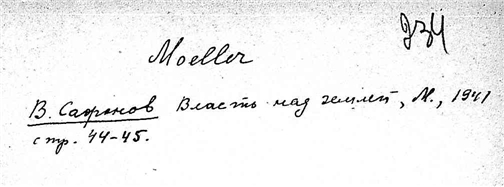 234
Moeller
В. Сафонов Власть над землей, М., 1941
стр. 44-45.